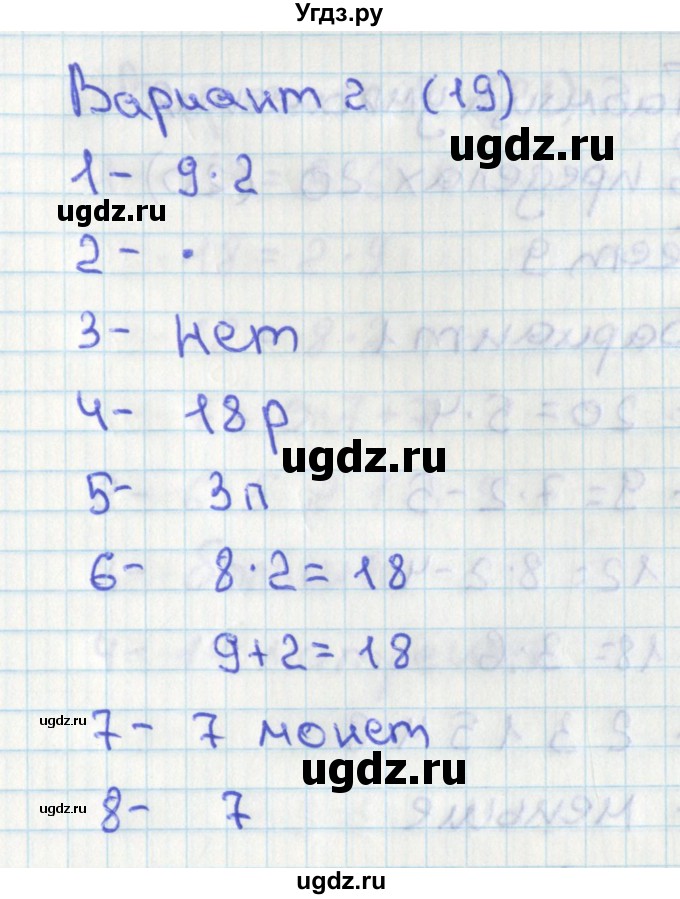 Угдз.ру
Вариант 2 (19)
ugdz.ru
1- 9·2
ugdz.ru
2- ·
3- нет
4- 18р
ugdz.ru
5- 3п
6- 8·2=18
9+2=18
ugdz.ru
ugdz.ru
7- 7 монет
ugdz.ru
ugdz.ru
8- 7
ugdz.ru